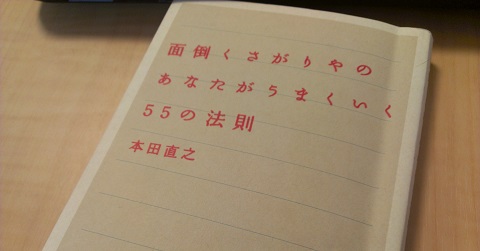 面倒くさがりやの
あなたがうまくいく
55の法則
本田直之